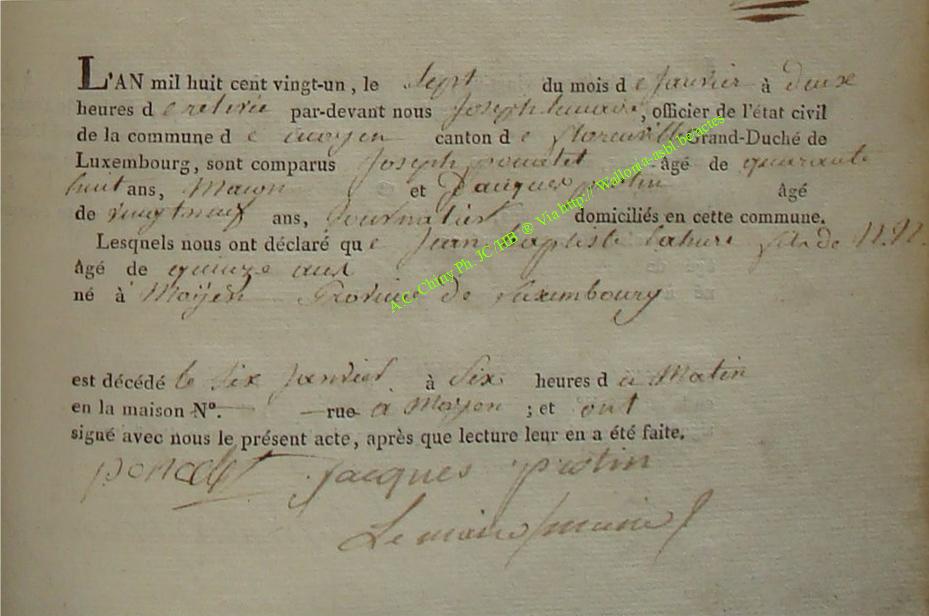 L'AN mil huit cent vingt-un, le Sept du mois de Janvier à deux
heures de relevée par-devant nous Joseph lemaire, officier de l'état civil
de la commune de moyen canton de florenville Grand-Duché de
Luxembourg, sont comparus Joseph poncelet âgé de quarante
huit ans, Maçon et Jacques protin âgé
de vingt neuf ans, Journalier domiciliés en cette commune.
Lesquels nous ont déclaré que Jean Baptiste lahure fils de N.N.
âgé de quinze ans
né à Moÿen Province de Luxembourg
est décédé le Six Janvier à Six heures du Matin
en la maison N°. — rue a Moyen ; et ont
signé avec nous le présent acte, après que lecture leur en a été faite.
poncelet Jacques protin
Lemaire maire
A.C. Chiny Ph. JC /HB ® Via http:// Wallonia-asbl.be/actes